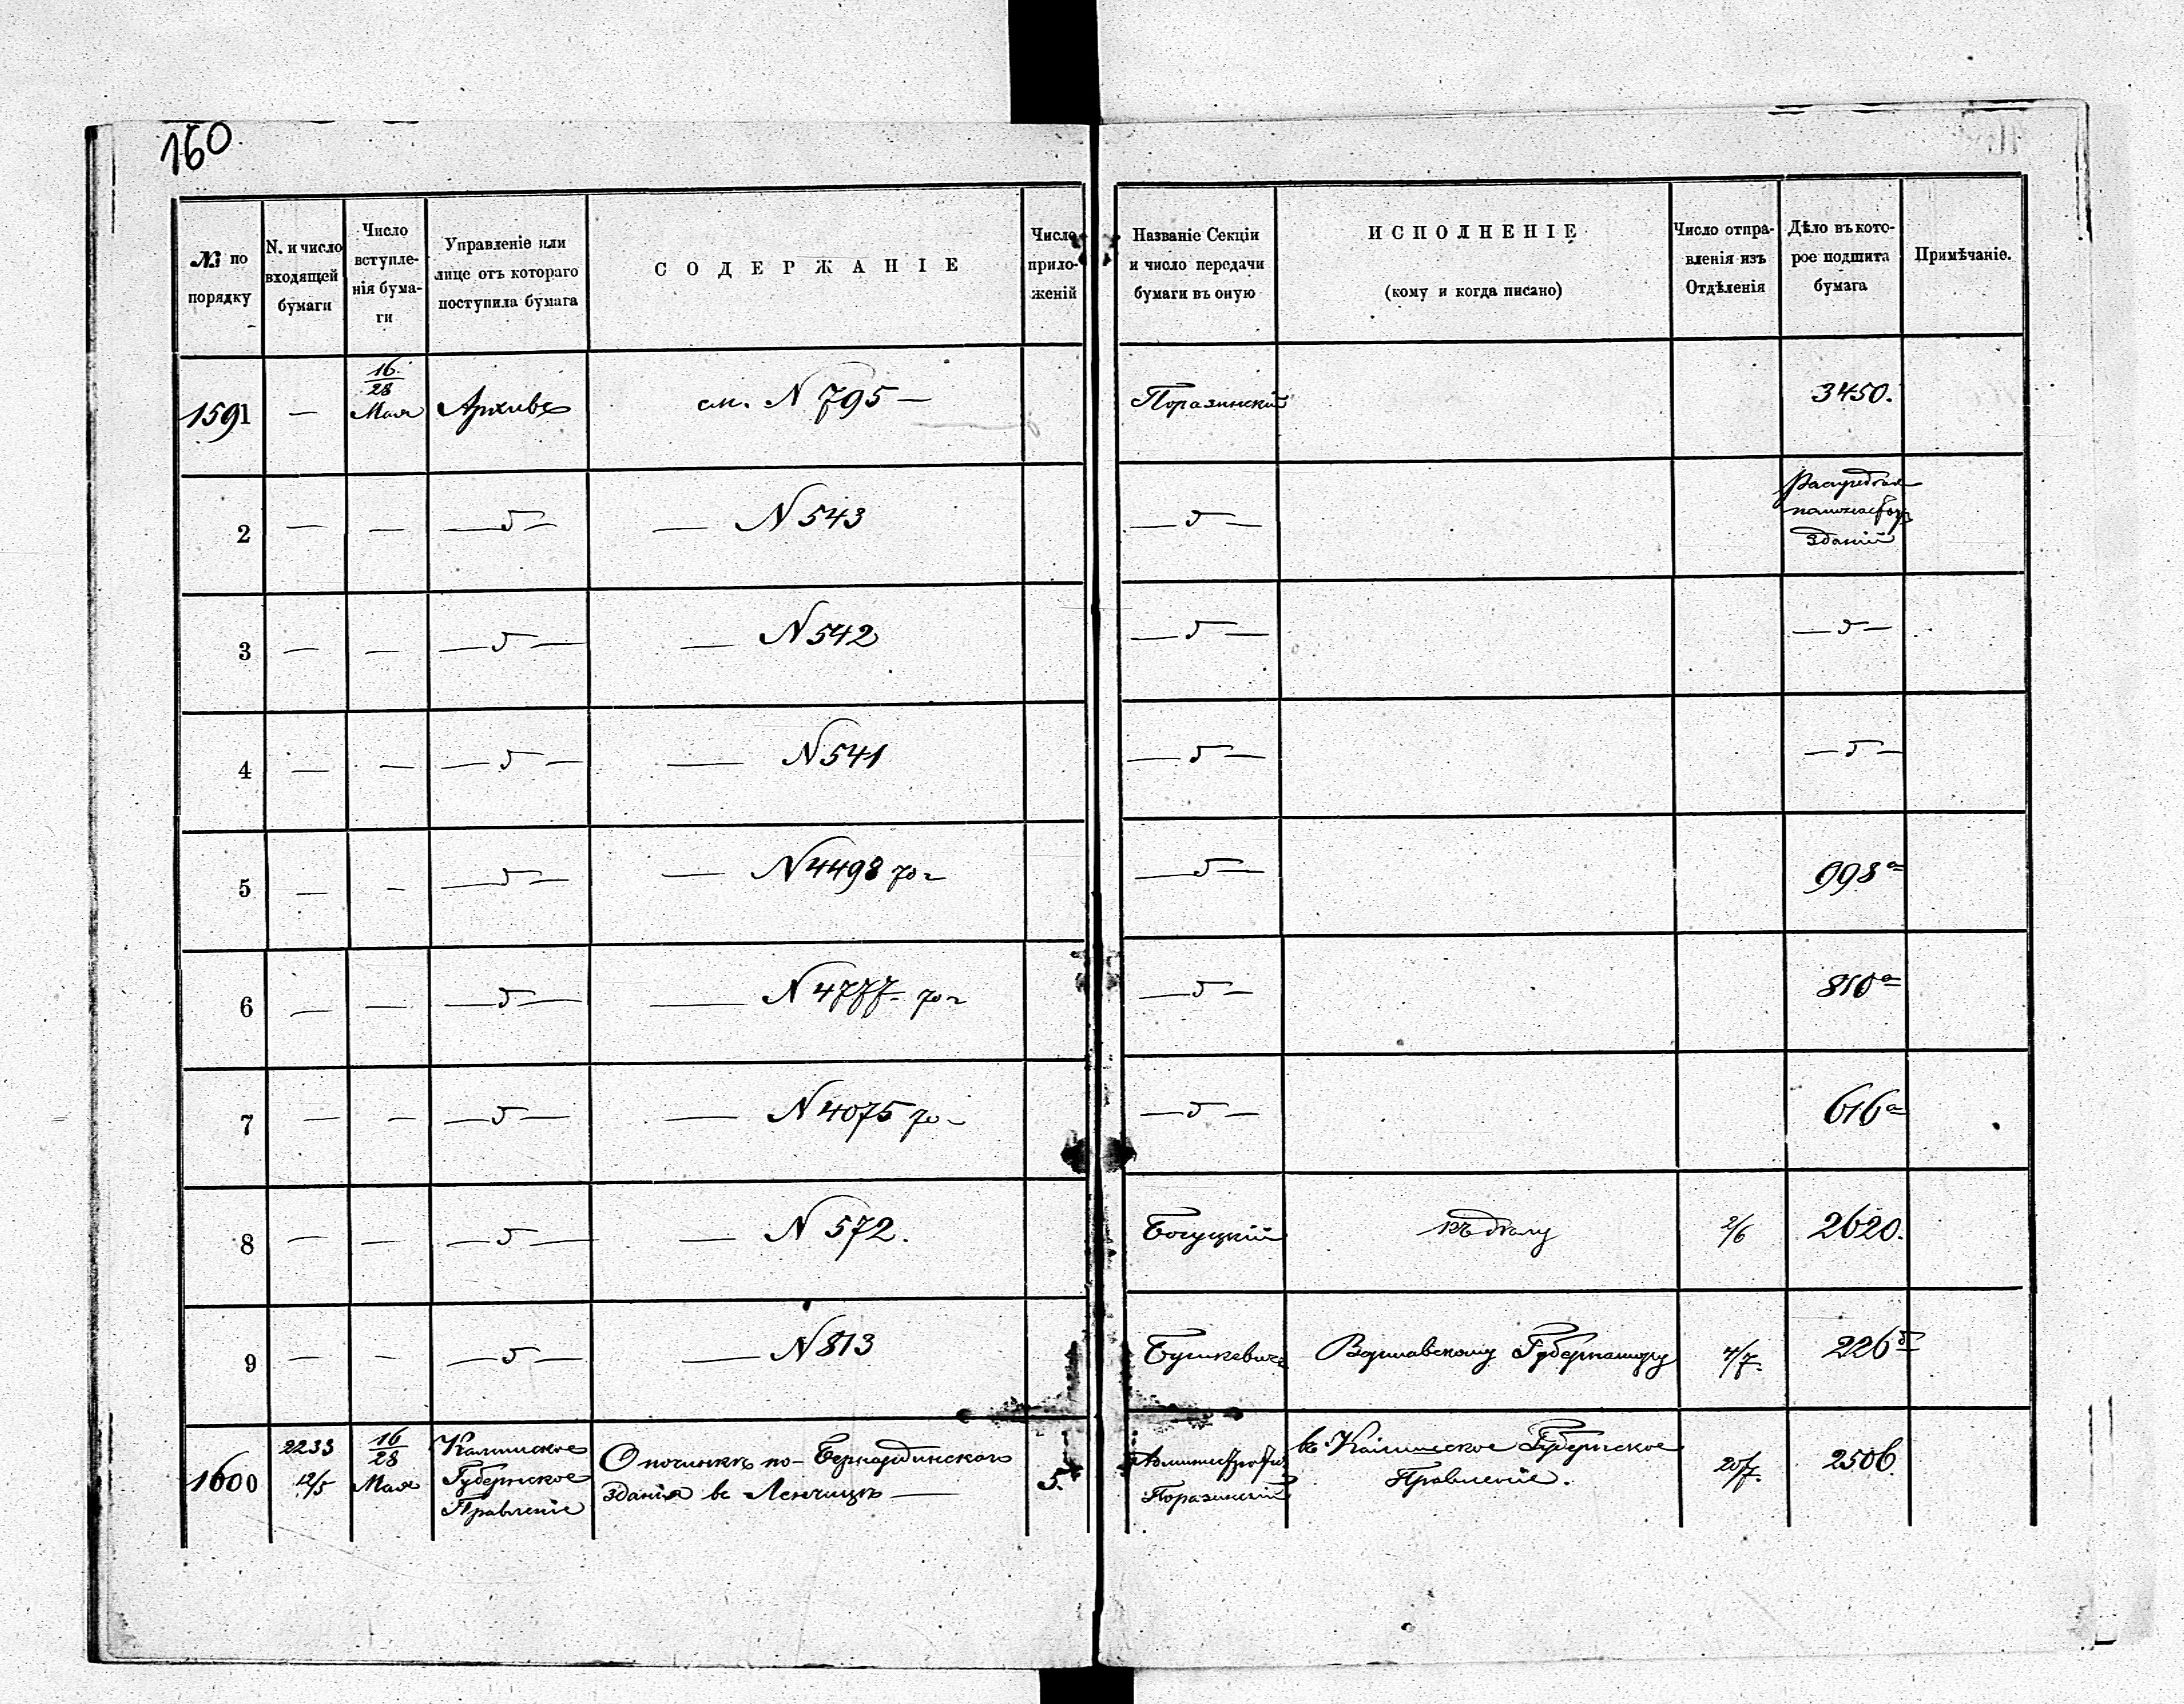 160
№ по порядку
N. и число входящей бумаги
Число вступле-нія бума-ги
Управленіе или лице отъ котораго поступила бумага
СОДЕРЖАНІЕ
Число прило-женій
Названіе Секціи и число передачи бумаги въ оную
ИСПОЛНЕНІЕ (кому и когда писано)
Число отпра-вленія изъ Отдѣленія
Дѣло въ кото-рое подшита бумага
Примѣчаніе.
1591 — 16/28 Мая Архивъ см. N 795 — Поразинскій 3450.
2 — — — " — — N 543 — " — зданій
3 — — — " — — N 542 — " — — " —
4 — — — " — — N 541 — " — — " —
5 — — — " — — N 4498 70 г — " — 998 а
6 — — — " — — N 4777 70 г — " — 810 а
7 — — — " — — N 4075 70 г — " — 616 а
8 — — — " — — N 572. Богуцкій къ дѣлу 2/6 2620.
9 — — — " — — N 813 Бушкевичъ Варшавскому Губернатору 4/7. 226 б
1600 2233 12/5 16/28 Мая Калишское Губернское Правленіе О починкѣ по-Бернардинскаго зданія въ Ленчицѣ — 5. Поразинскій въ Калишское Губернское Правленіе. 20/7. 2506.